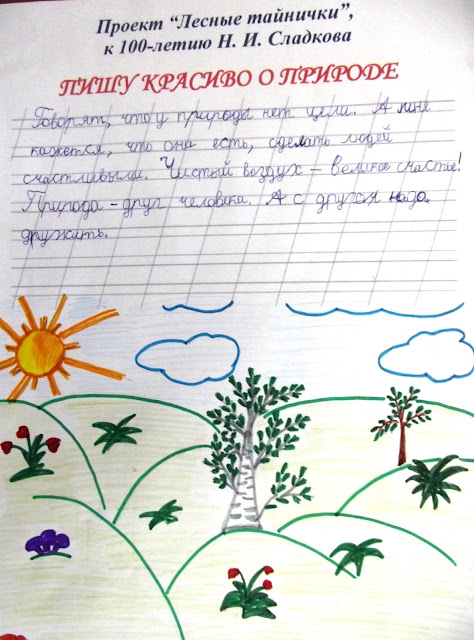 Проект “Лесные тайнички”,
к 100-летию Н. И. Сладкова
ПИШУ КРАСИВО О ПРИРОДЕ
Говорят, что у природы нет цели. А мне
кажется, что она есть, сделать людей
счастливыми. Чистый воздух – великое счастье!
Природа – друг человека. А с другом надо
дружить.